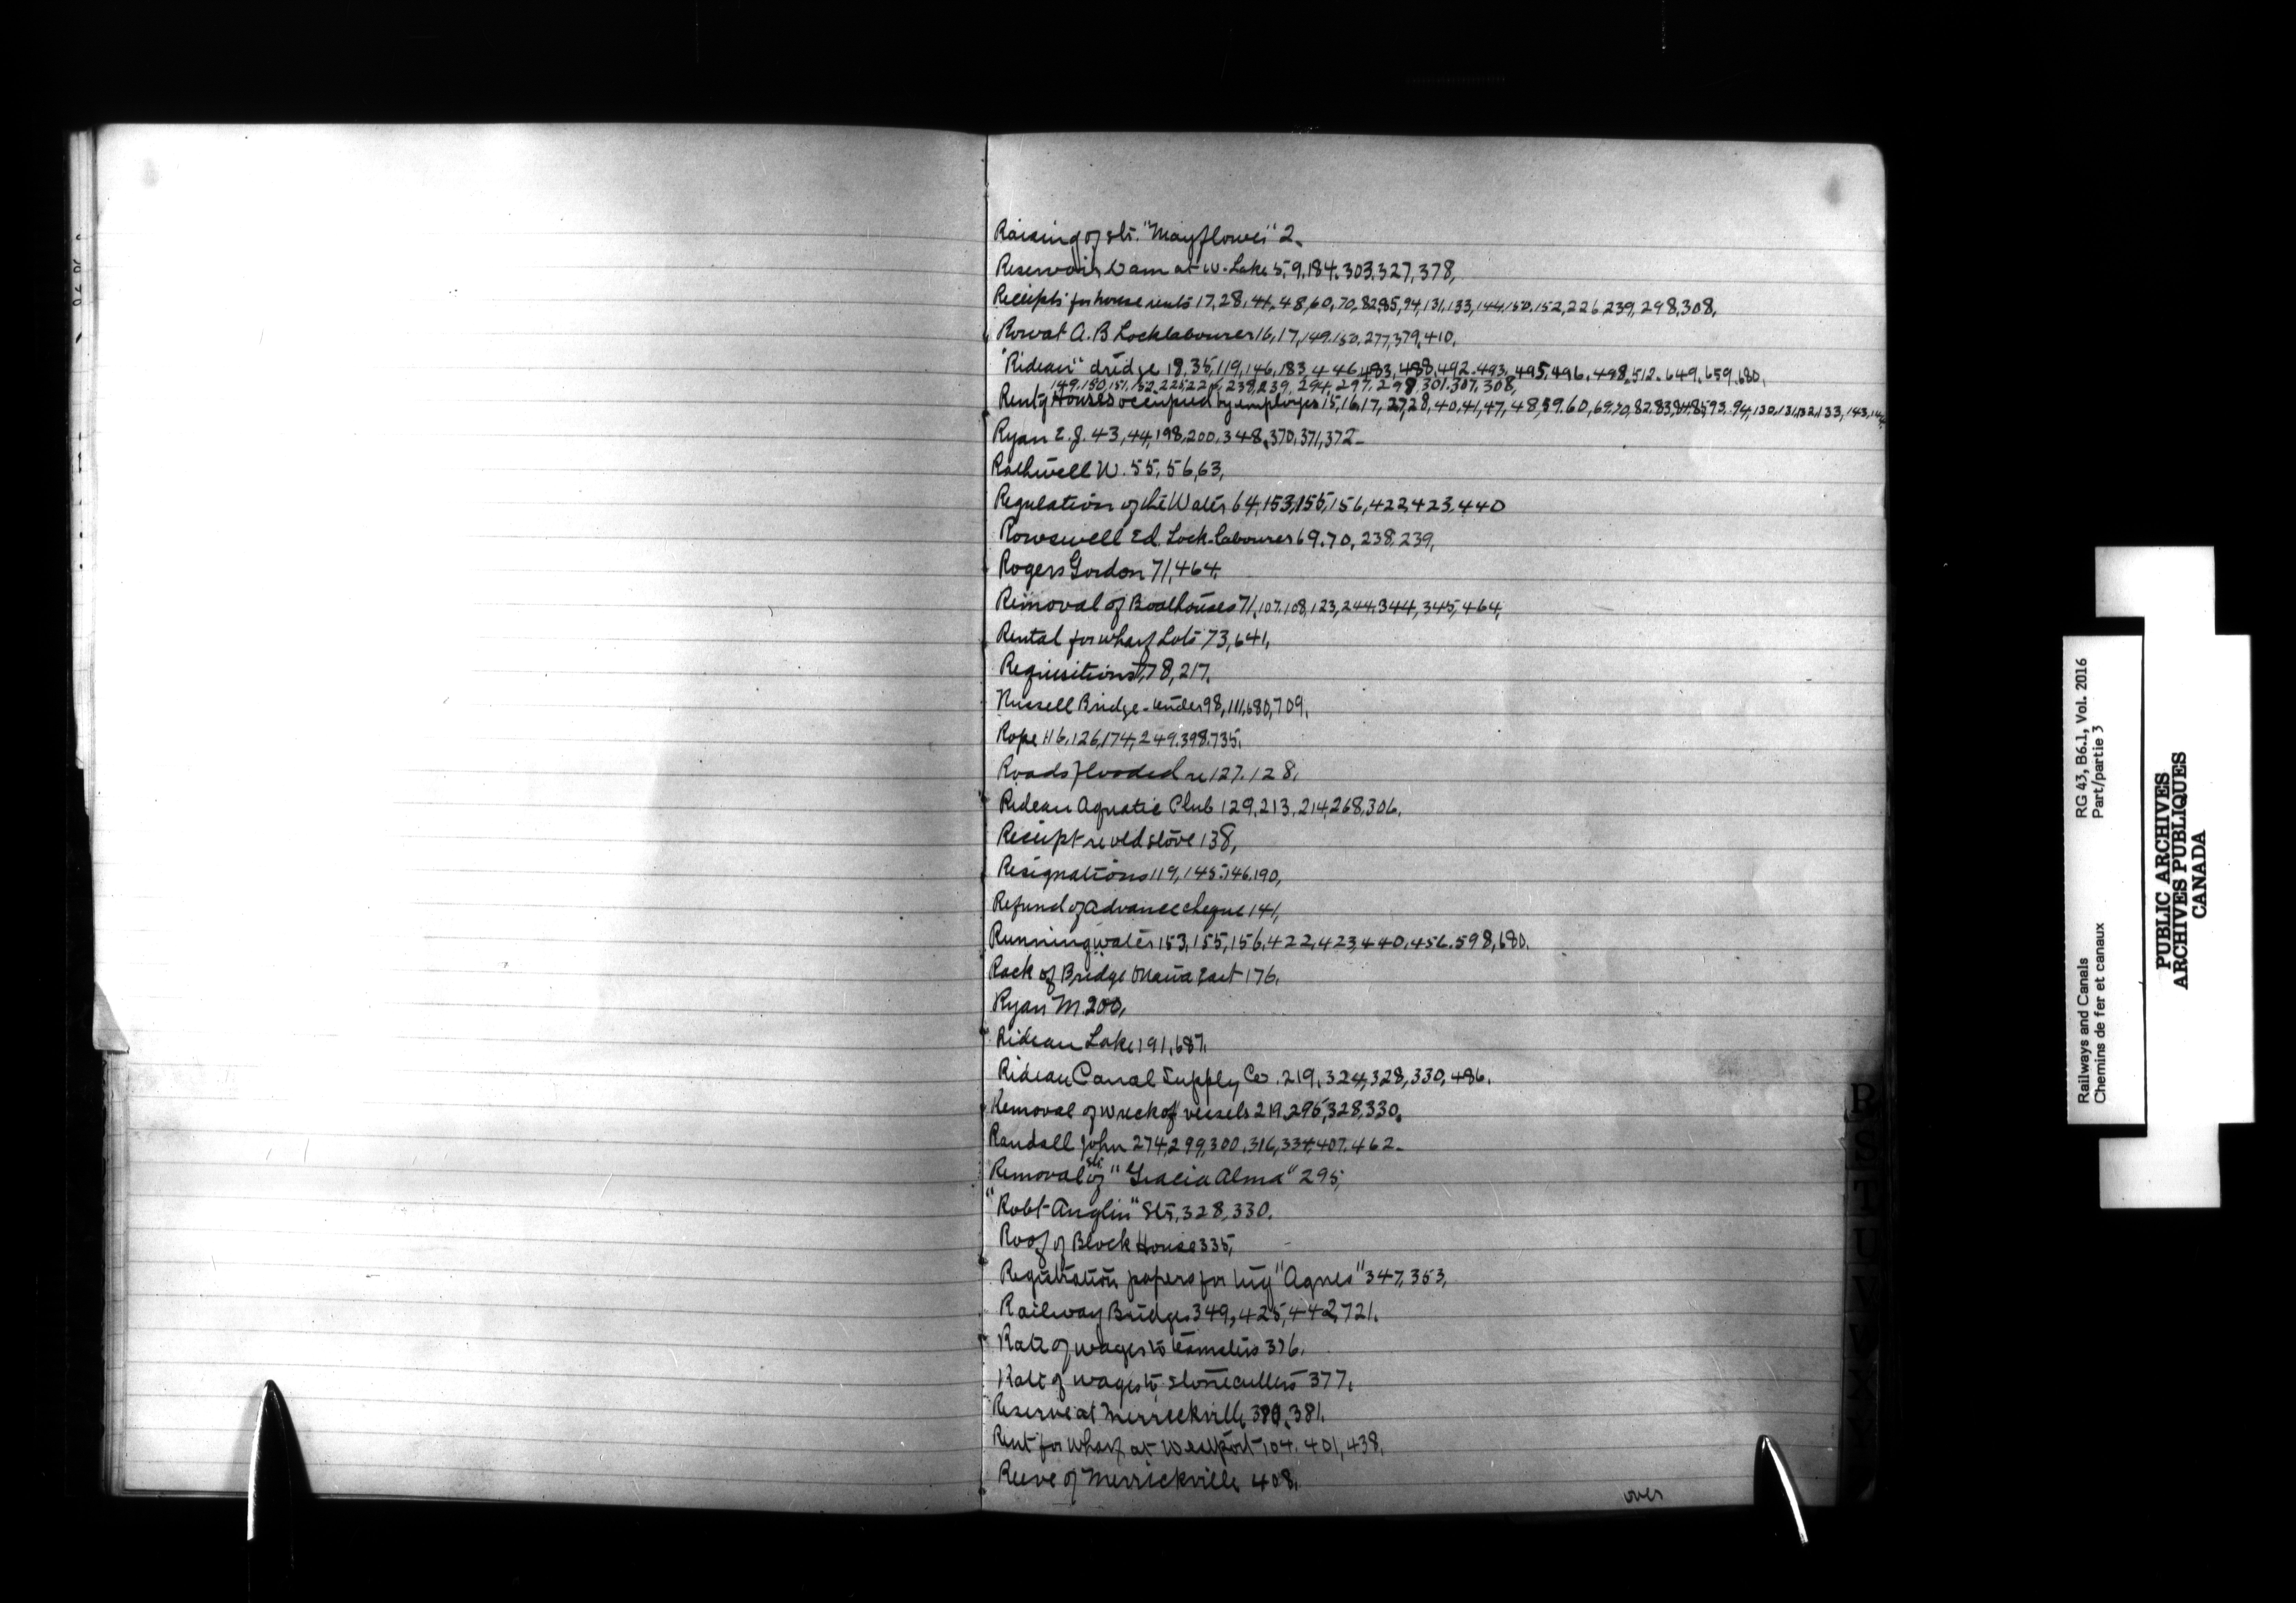 Raising of str. "Mayflower" 2.
Reservoir Dam at W. Lake 5, 9, 184, 303, 327, 378,
Receipts for house rents 17, 28, 41, 48, 60, 70, 82, 85, 94, 131, 133, 144, 150, 152, 226, 239, 298, 308,
Rowat A. B Locklabourer 16, 17, 149, 150, 277, 379, 410,
"Rideau" dredge 18, 35, 119, 146, 183, 446, 483, 488, 492, 493, 495, 496, 498, 512, 649, 659, 680,
149, 150, 151, 152, 225, 226, 238, 239, 294, 297, 298, 301, 307, 308,
Rent of Houses occupied by employes 15, 16, 17, 27, 28, 40, 41, 47, 48, 59, 60, 69, 70, 82, 83, 84, 85, 93, 94, 130, 131, 132, 133, 143, 144,
Ryan E. J. 43, 44, 198, 200, 348, 370, 371, 372
Rothwell W. 55, 56, 63,
Regulation of the Water 64, 153, 155, 156, 422, 423, 440
Rowswell Ed. Lock-labourer 69, 70, 238, 239,
Rogers Gordon 71, 464,
Removal of Boathouses 71, 107, 108, 123, 244, 344, 345, 464,
Rental for wharf Lots 73, 641,
Requisitions, 78, 217,
Russell Bridge - tender 98, 111, 680, 709,
Rope 116, 126, 174, 249, 398, 735,
Roads flooded re 127, 128,
Rideau Aquatic Club 129, 213, 214, 268, 306,
Receipt re old stove 138,
Resignations 119, 145, 146, 190,
Refund of advance cheque 141,
Running water 153, 155, 156, 422, 423, 440, 456, 598, 680,
Rack of Bridge Maria East 176,
Ryan M. 200,
Rideau Lake 191, 687,
Rideau Canal Supply Co. 219, 324, 328, 330, 486,
Removal of wreck of vessels 219, 295, 328, 330,
Randall John 274, 299, 300, 316, 334, 407, 462
Removal of str "Gracia Alma" 295,
"Robt Anglin" Str, 328, 330,
Roof of Block House 335,
Registration papers for tug "Agnes" 347, 353,
Railway Bridges 349, 425, 442, 721,
Rate of wages to teamsters 376,
Rate of wages to stonecutters 377,
Reserve at Merrickville 380, 381,
Rent for wharf at Westport 104, 401, 438,
Reeve of Merrickville 408,
over
R
S
T
U
V
W
X
Y
Railways and Canals RG 43, B6.1, Vol. 2016
Chemins de fer et canaux Part/partie 3
PUBLIC ARCHIVES
ARCHIVES PUBLIQUES
CANADA